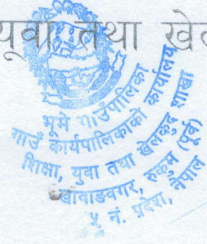 यूवा तथा खेल
भूमे गाउँपालिका
गाउँ कार्यपालिकाको कार्यालय
शिक्षा, युवा तथा खेलकुद शाखा
खाबाङबगर, रुकुम (पूर्व)
५ नं. प्रदेश, नेपाल